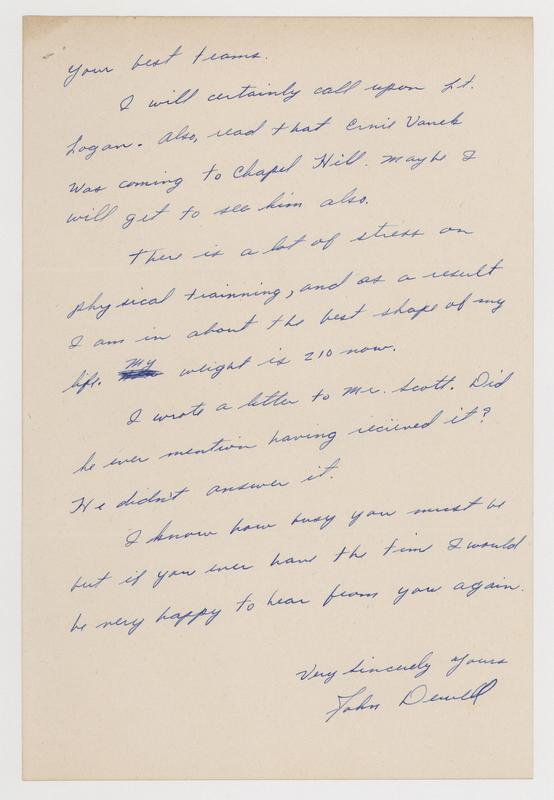 your best teams.
I will certainly call upon Lt.
Logan. Also, read that Ernie Vanek
was coming to Chapel Hill. Maybe I
will get to see him also.
There is a lot of stress on
physical trainning, and as a result
I am in about the best shape of my
life. My weight is 210 now.
I wrote a letter to Mr. Scott. Did
he ever mention having recieved it?
He didn't answer it.
I know how busy you must be
but if you ever have the time I would
be very happy to hear from you again.
Very Sincerely Yours
John Dewell